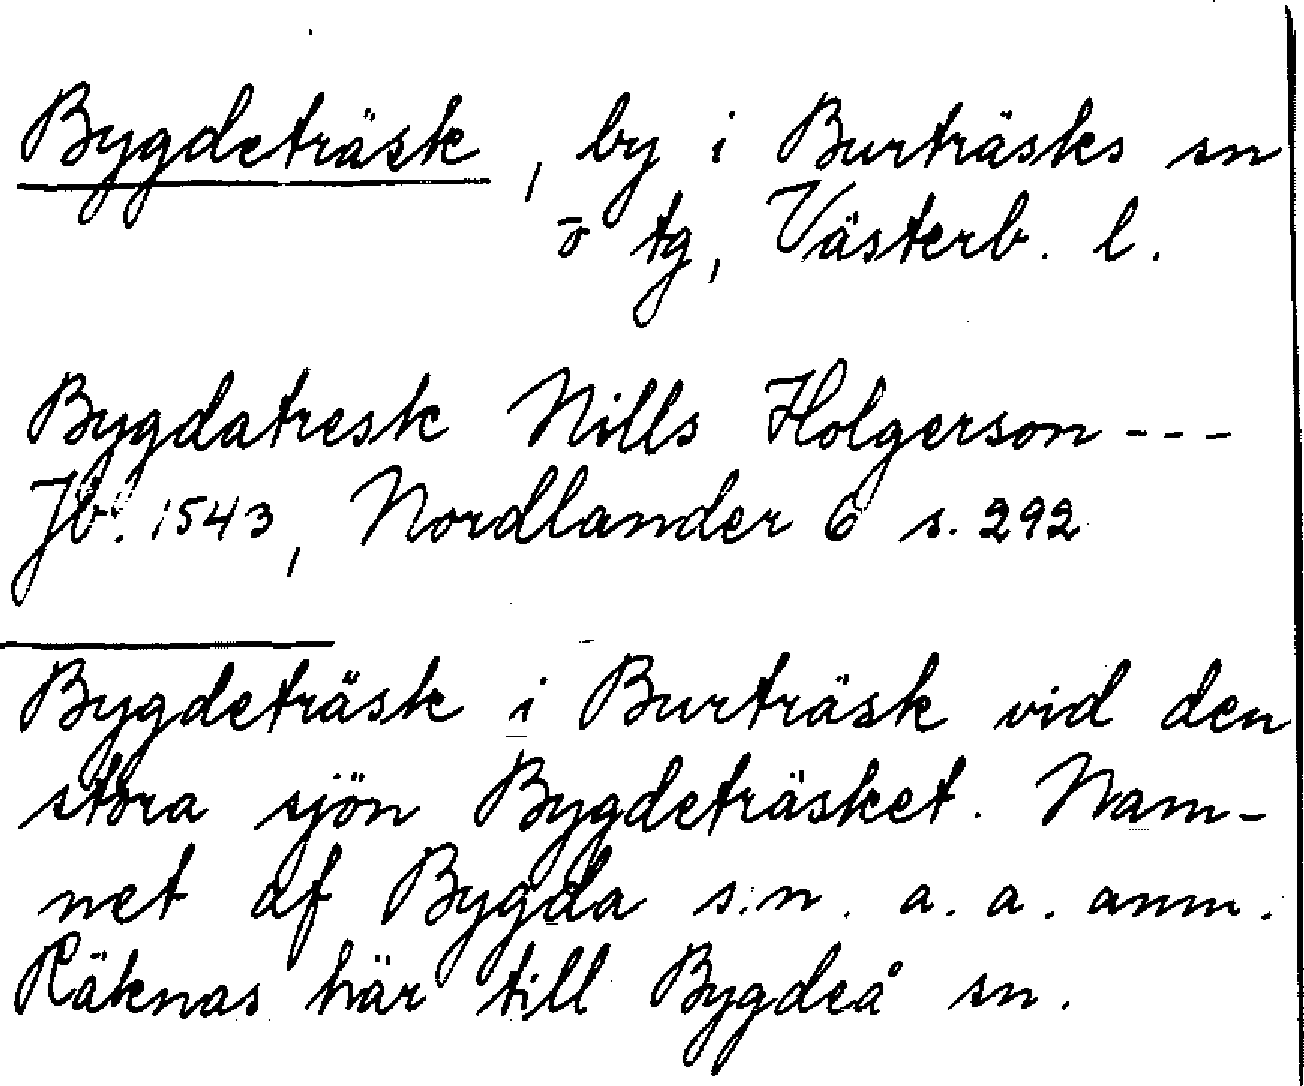 Bygdeträsk, by i Burträsks sn
o tg, Västerb. l.
Bygdatresk Nills Holgerson ---
Jb. 1543, Nordlander 6 s. 292
Bygdeträsk i Burträsk vid den
stora sjön Bygdeträsket. Nam-
net af Bygda s.n. a. a. anm.
Räknas här till Bygdeå sn.